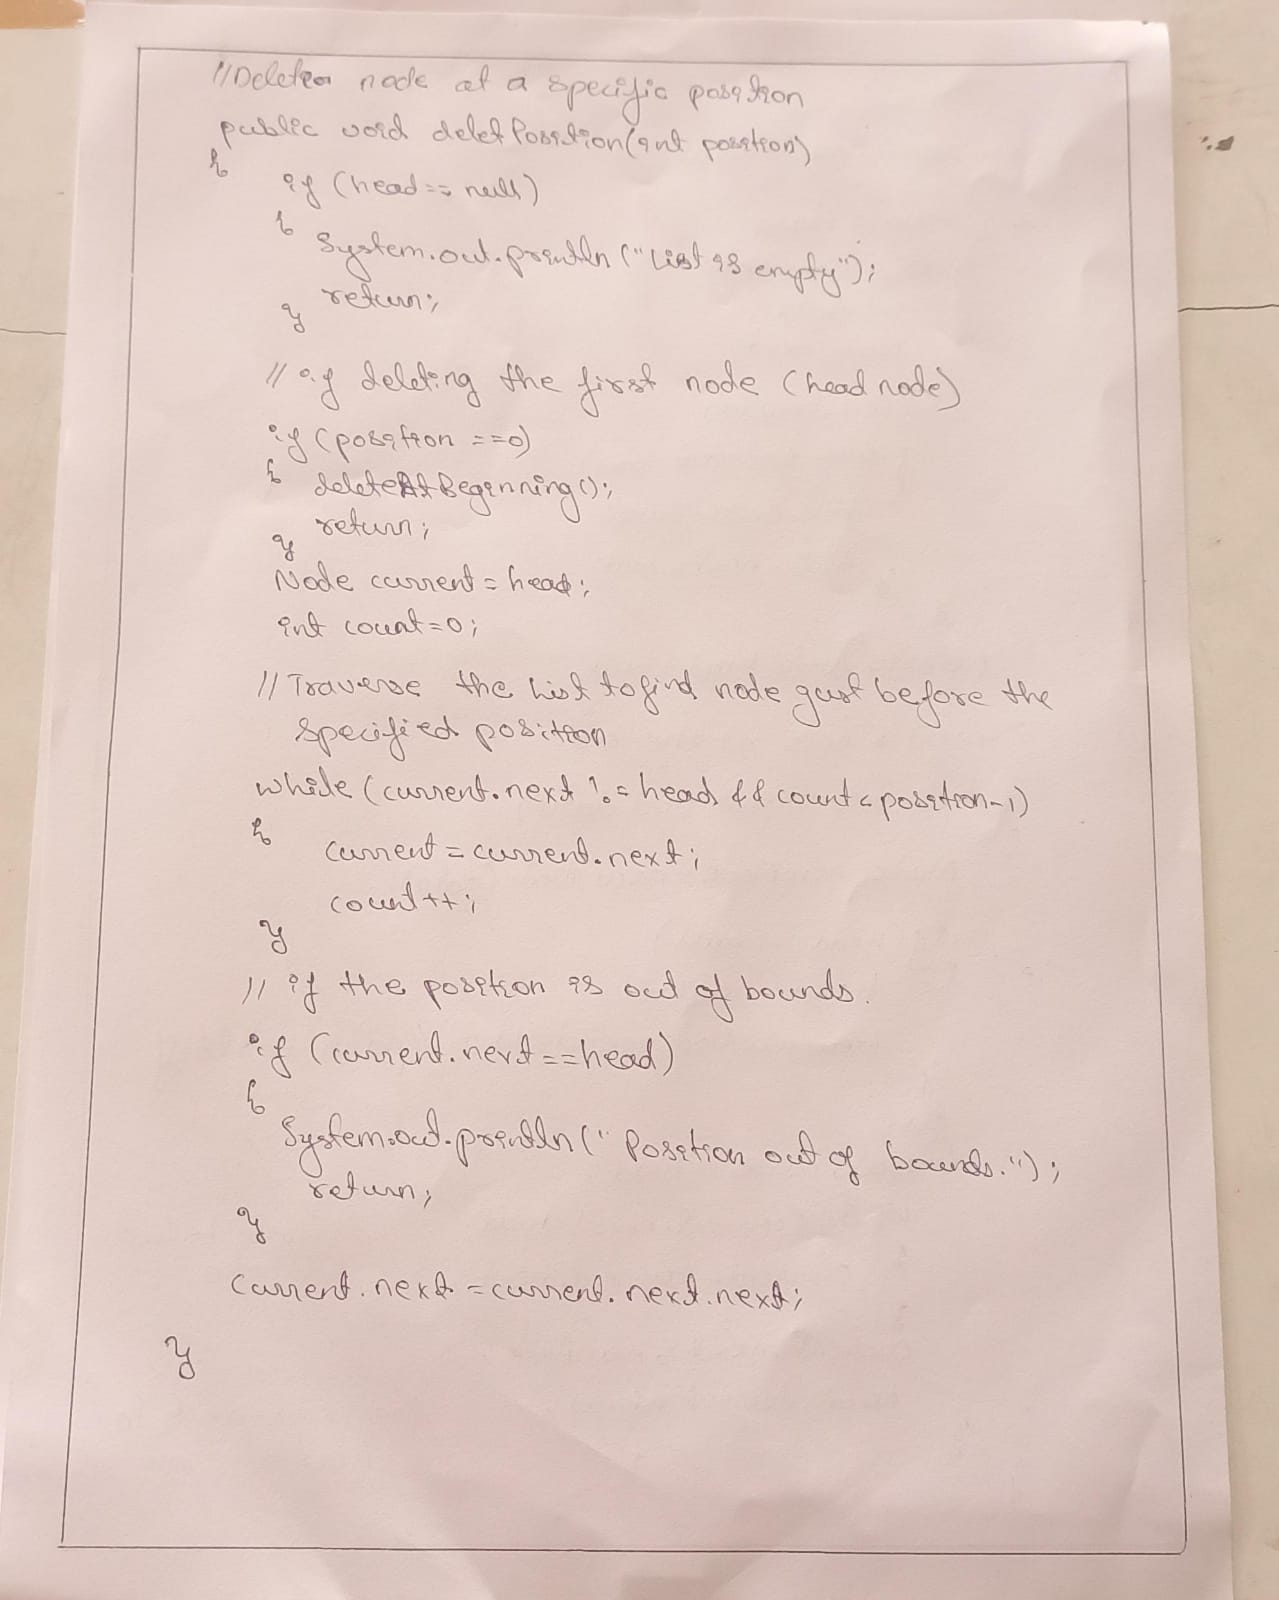 //Delete a node at a specific position
public void deletPosition(int position)
{
if (head == null)
{
System.out.println ("List is empty");
return;
}
// if deleting the first node (head node)
if (position ==0)
{
deleteAtBeginning();
return;
}
Node current = head;
int count=0;
// Traverse the list to find node just before the
specified position
while (current.next != head && count < position-1)
{
current = current.next;
count++;
}
// if the position is out of bounds.
if (current.next==head)
{
System.out.println(" Position out of bounds.");
return;
}
current.next = current.next.next;
}